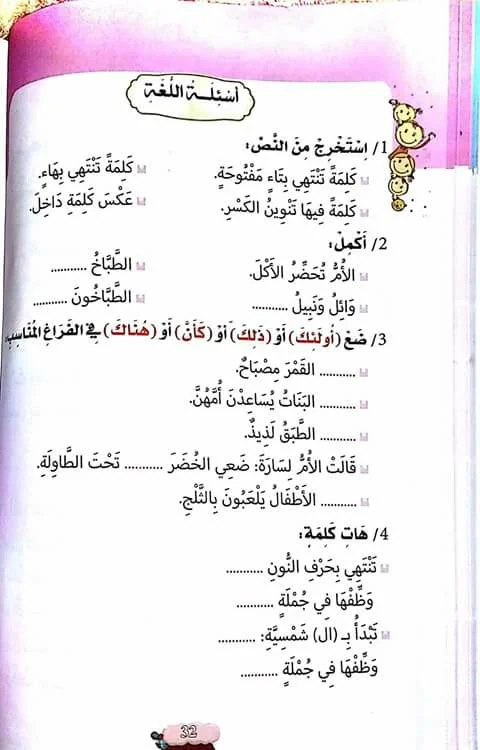 أَسْئِلَةُ اللُّغَةِ
1/ اِسْتَخْرِجْ مِنَ النَّصِّ:
كَلِمَةً تَنْتَهِي بِتَاءٍ مَفْتُوحَةٍ. كَلِمَةً تَنْتَهِي بِهَاءٍ.
كَلِمَةً فِيهَا تَنْوِينُ الكَسْرِ. عَكْسَ كَلِمَةِ دَاخِلَ.
2/ أَكْمِلْ:
الأُمُّ تُحَضِّرُ الأَكْلَ. الطَّبَّاخُ ...........
وَائِلُ وَنَبِيلُ ........... الطَّبَّاخُونَ ...........
3/ ضَعْ (أُولَئِكَ) أَوْ (ذَلِكَ) أَوْ (كَأَنَّ) أَوْ (هُنَاكَ) فِي الفَرَاغِ المُنَاسِبِ:
........... القَمْرَ مِصْبَاحٌ.
........... البَنَاتُ يُسَاعِدْنَ أُمَّهُنَّ.
........... الطَّبَقُ لَذِيذٌ.
قَالَتْ الأُمُّ لِسَارَةَ: ضَعِي الخُضَرَ ........... تَحْتَ الطَّاوِلَةِ.
........... الأَطْفَالُ يَلْعَبُونَ بِالثَّلْجِ.
4/ هَاتِ كَلِمَةً:
تَنْتَهِي بِحَرْفِ النُّونِ ...........
وَظِّفْهَا فِي جُمْلَةٍ ...........
تَبْدَأُ بِـ (ال) شَمْسِيَّةٍ: ...........
وَظِّفْهَا فِي جُمْلَةٍ ...........
32